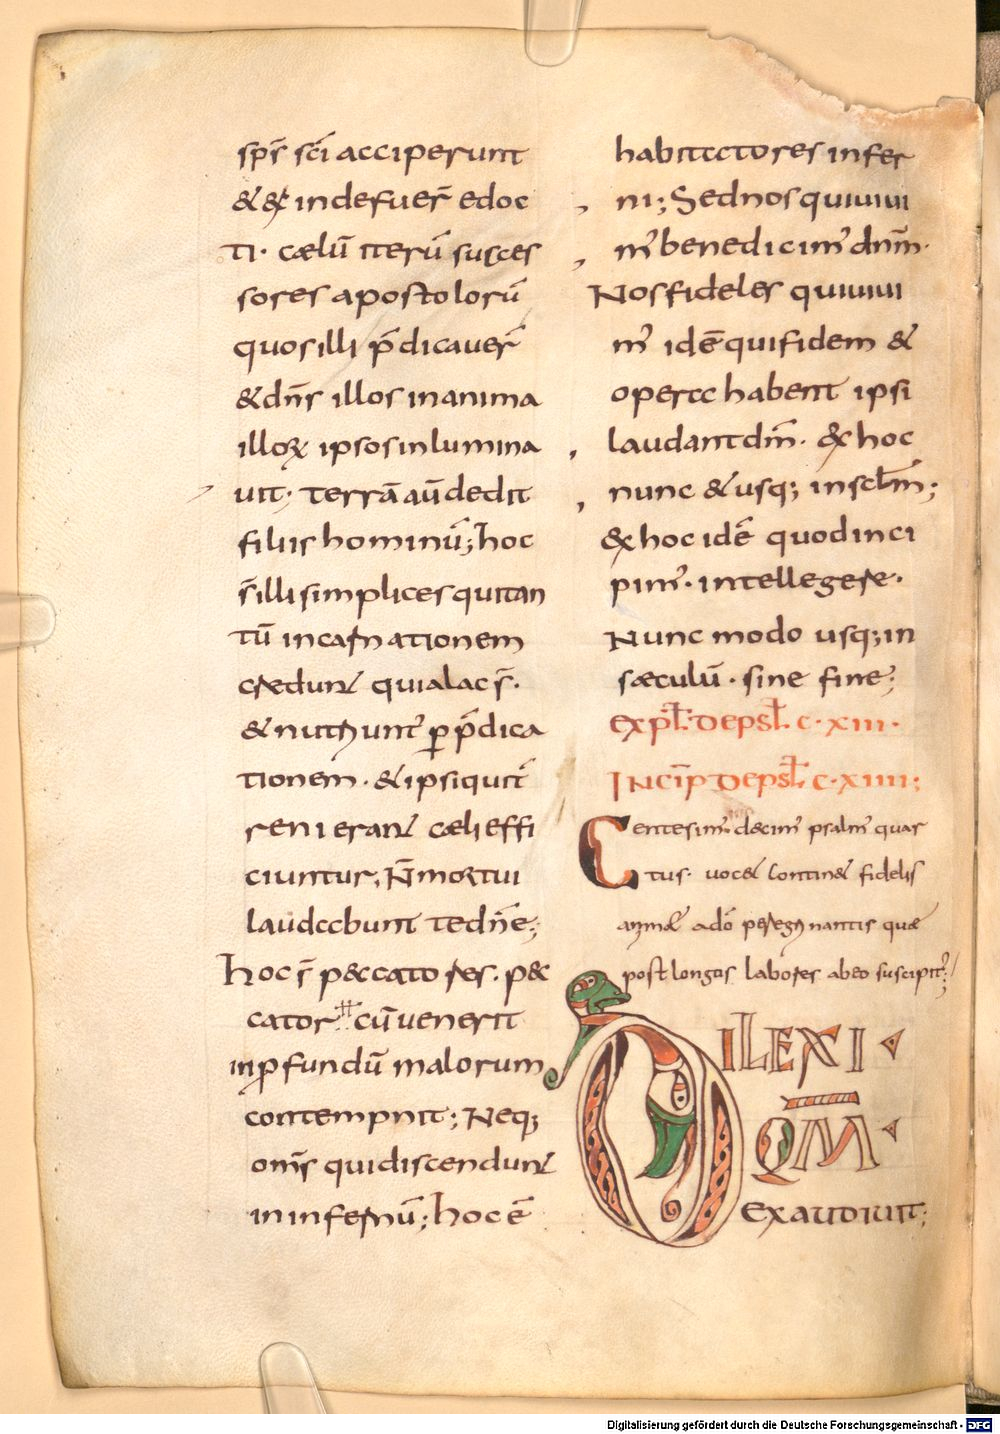 sp̄s sc̄i acciperunt
& & inde fuer̄ edoc
ti· cælū iterū susces
sores apostolorū
quos illi p̄dicauer̄
& dn̄s illos in anima
illoꝝ ipsos inlumina
uit; terrā aū dedit
filiis hominū; hoc
s̄ illi simplices qui tan
tū incarnationem
credunt quia lac s̄·
& nutriunt̄ ꝑ p̄dica
tionem· & ipsi qui t̄
reni erant cæli effi
ciuntur; N̄ mortui
laudabunt te dn̄e;
hoc s̄ peccatores· pec
cator cū uenerit
in ꝓfundū malorum
contempnit; Neq;
om̄s qui discendunt
in infernū; hoc ē
habitatores infer
ni; Sed nos qui uiui
m' benedicim' dn̄m·
Nos fideles qui uiui
m' idē qui fidem &
opera habent ipsi
laudant dm̄· & hoc
nunc & usq; in sclm̄;
& hoc idē quod inci
pim'· intellegere·
Nunc modo usq; in
sæculū· sine fine;
expl̄· de psl̄ c·xiii·
Incip̄ de psl̄ c·xiiii;
Centesim' decim' psalm' quar
tus· uocē continet fidelis
animæ a dō peregrinantis quæ
post longos labores ab eo suscipit';
DILEXI
QM̄
exaudiuit;
Digitalisierung gefördert durch die Deutsche Forschungsgemeinschaft - DFG